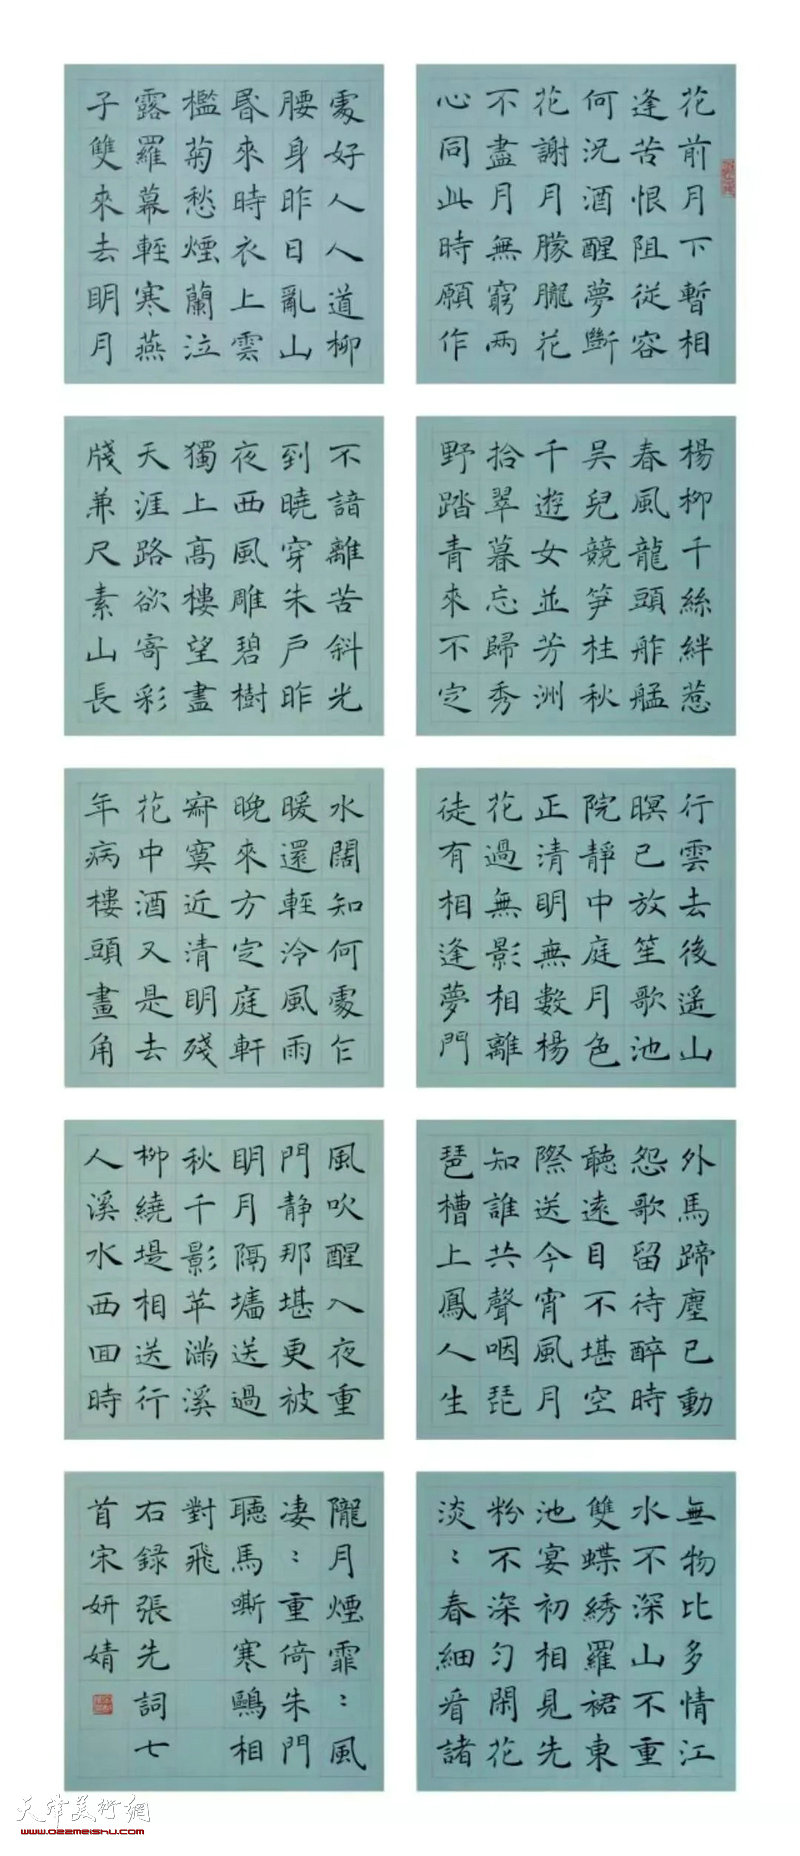 花前月下暫相
逢苦恨阻從容
何況酒醒夢斷
花謝月朦朧花
不盡月無窮两
心同此時願作
楊柳千絲絆惹
春風龍頭舴艋
吴兒競笋柱秋
千遊女並芳洲
拾翠暮忘歸秀
野踏青來不定
行雲去後遥山
暝已放笙歌池
院靜中庭月色
正清明無數楊
花過無影相離
徒有相逢夢門
外馬蹄塵已動
怨歌留待醉時
聽遠目不堪空
際送今宵風月
知誰共聲咽琵
琶槽上鳳人生
無物比多情江
水不深山不重
雙蝶綉羅裙東
池宴初相見先
粉不深勻閑花
淡〻春細看諸
處好人人道柳
腰身昨日亂山
昬來時衣上雲
檻菊愁煙蘭泣
露羅幕輕寒燕
子雙來去明月
不諳離苦斜光
到曉穿朱戶昨
夜西風雕碧樹
獨上高樓望盡
天涯路欲寄彩
牋兼尺素山長
水闊知何處乍
暖還輕泠風雨
晚來方定庭軒
寂寞近清明殘
花中酒又是去
年病樓頭畫角
風吹醒入夜重
門静那堪更被
明月隔墻送過
秋千影苹滿溪
柳繞堤相送行
人溪水西回時
隴月煙霏〻風
凄〻重倚朱門
聽馬嘶寒鷗相
對飛
右録張先詞七
首宋妍婧
天津美術網
www.022meishu.com